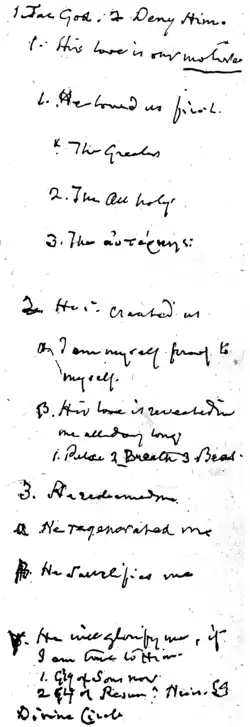 1. For God. & Deny Him.
1. His love is our motive
1. He loved us first.
x. The Greatest
2. The All holy
3. The αὐτάρκης:
2. He created us
α, I am myself proof to
myself.
β. His love is revealed in
me all day long
1. Pulse 2 Breath 3 Beat
3. He redeemed me.
α. He regenerated me
β. He sanctifies me
γ. He will glorify me, if
I am true to Him.
1. Gy of Sons now
2 Gy of
Divine Circle